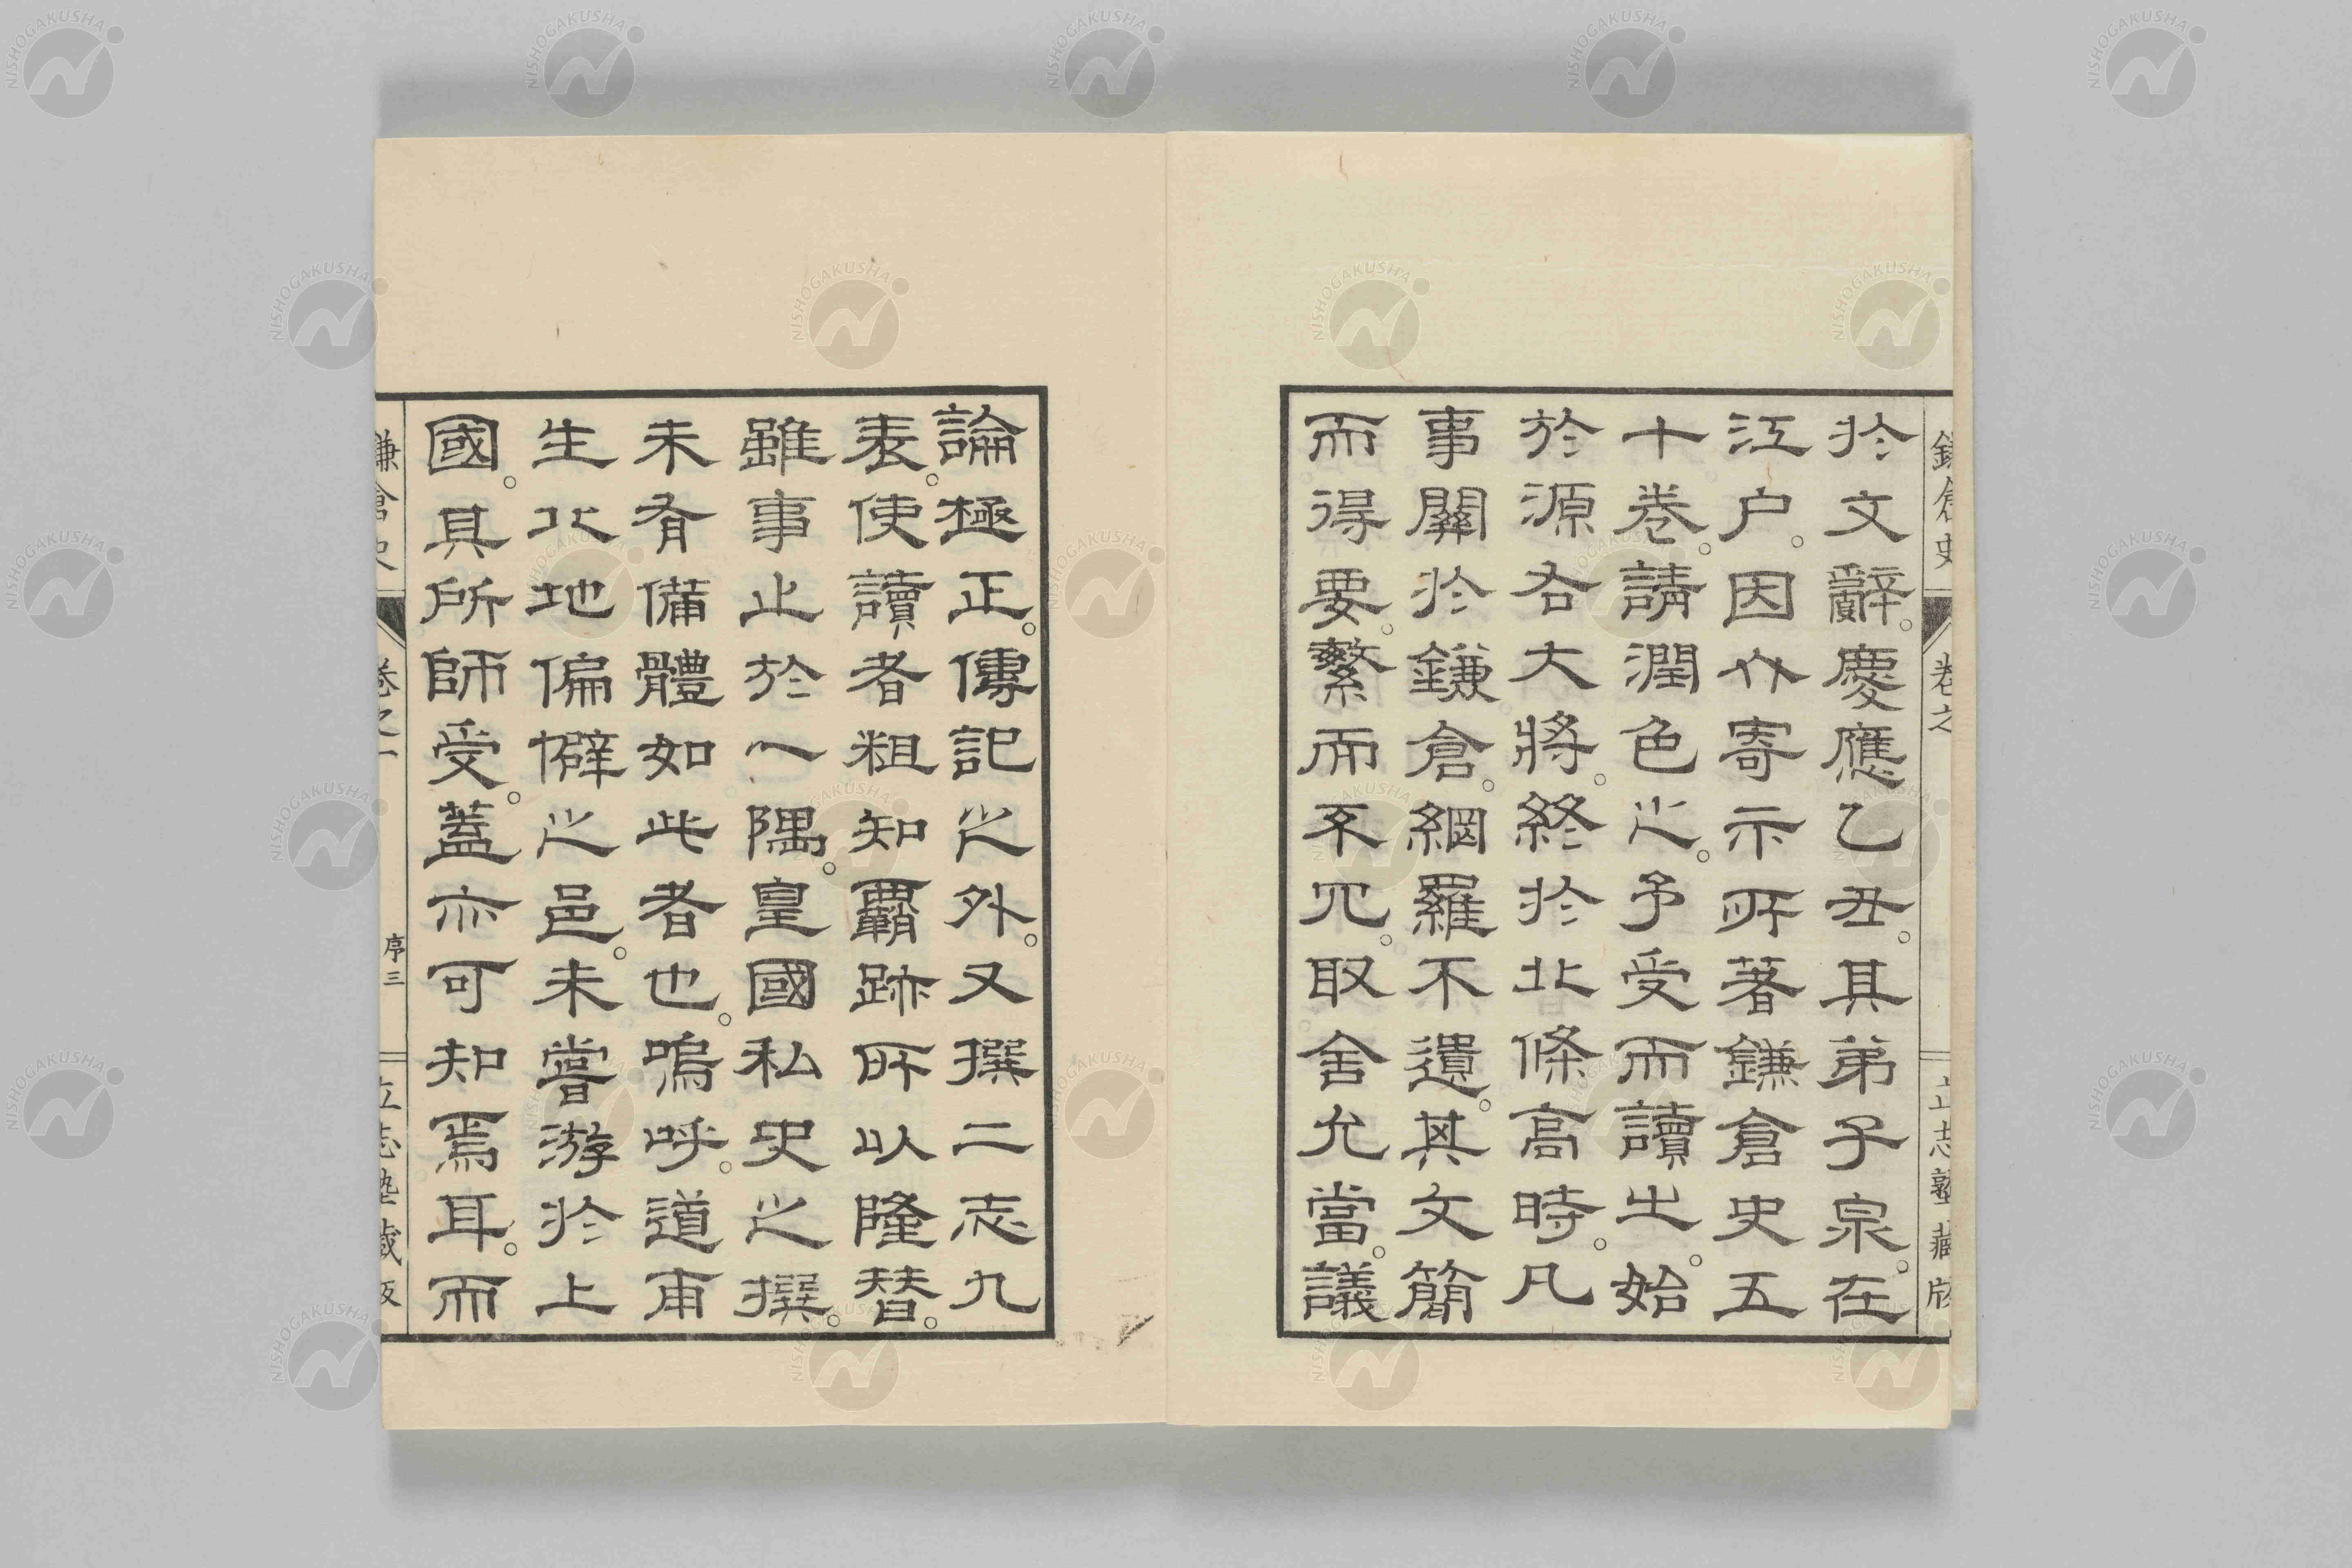 於文辭。慶應乙丑。其弟子泉在
江戶。因介寄示所著鎌倉史五
十卷。請潤色之。予受而讀之。始
於源右大將。終於北條高時。凡
事關於鎌倉。網羅不遺。其文簡
而得要。繁而不冗。取舍允當。議
論極正。傳記之外。又撰二志九
表。使讀者粗知霸跡所以隆替。
雖事止於一隅。皇國私史之撰。
未有備體如此者也。嗚呼。道甫
生北地偏僻之邑。未嘗游於上
國。其所師受。蓋亦可知焉耳。而
鎌倉史 卷之一 序三 立志塾藏版
NISHOGAKUSHA